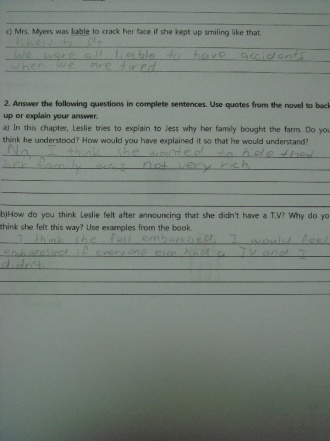 c) Mrs. Myers was liable to crack her face if she kept up smiling like that.
likely to do
We were all liable to have accidents
when we are tired
2. Answer the following questions in complete sentences. Use quotes from the novel to back
up or explain your answer.
a) In this chapter, Leslie tries to explain to Jess why her family bought the farm. Do you
think he understood? How would you have explained it so that he would understand?
No, I think she wanted to hide that
her family was not very rich
b)How do you think Leslie felt after announcing that she didn't have a T.V? Why do yo
think she felt this way? Use examples from the book.
I think she felt embarssed, I would feel
embarssed if everyone else had a TV and I
didn't.